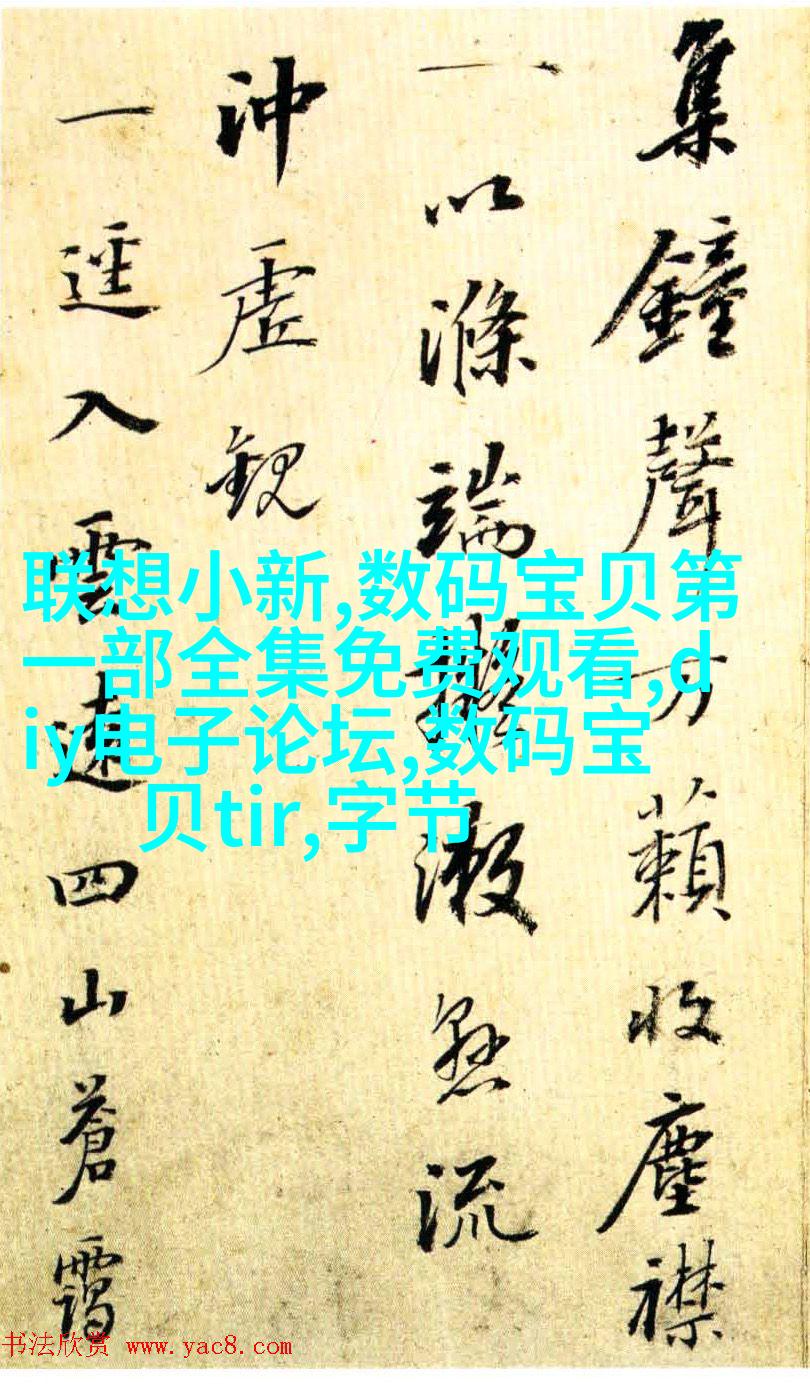 集鐘聲万藾收塵襟
一以滌端擬漱懸流
沖虛觀
一逕入雲遠四山蒼靄
联想小新,数码宝贝第
一部全集免费观看,d
iy电子论坛,数码宝
贝tir,字节
书法欣赏 www.yac8.com